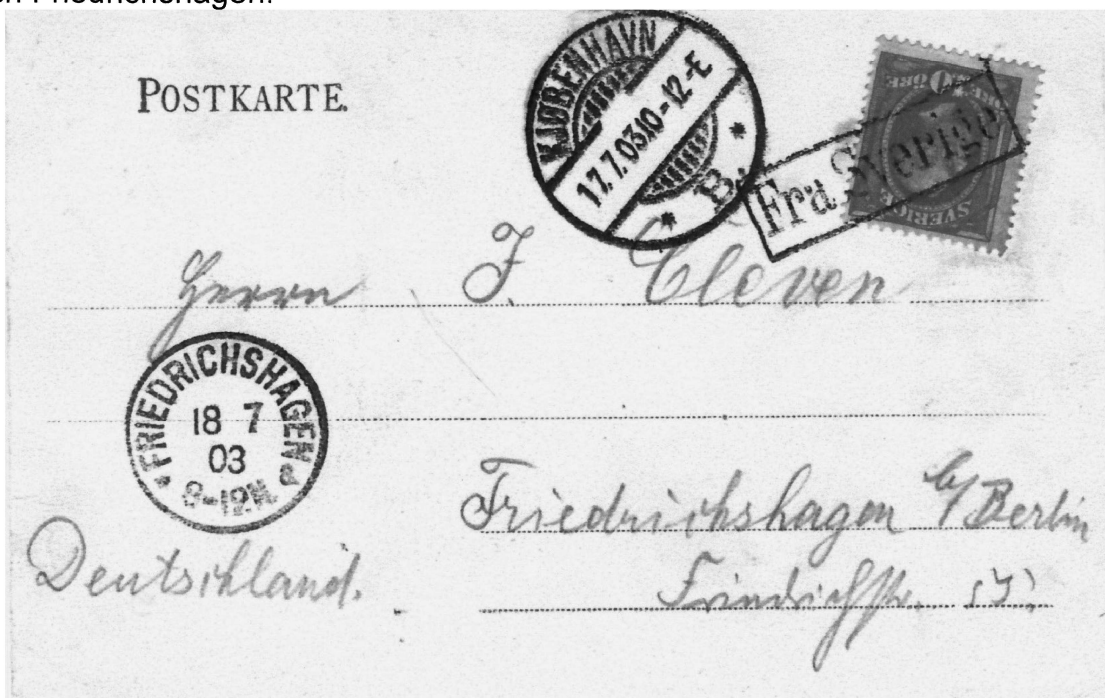 POSTKARTE.
KJØBENHAVN
17.7.03 10-12-E
B.
Fra Sverige
ÖRE
SVERIGE
Herrn J. Cleven
FRIEDRICHSHAGEN
18 7
03
8-12N
a
Friedrichshagen b/Berlin
Deutschland.
Friedrichstr.